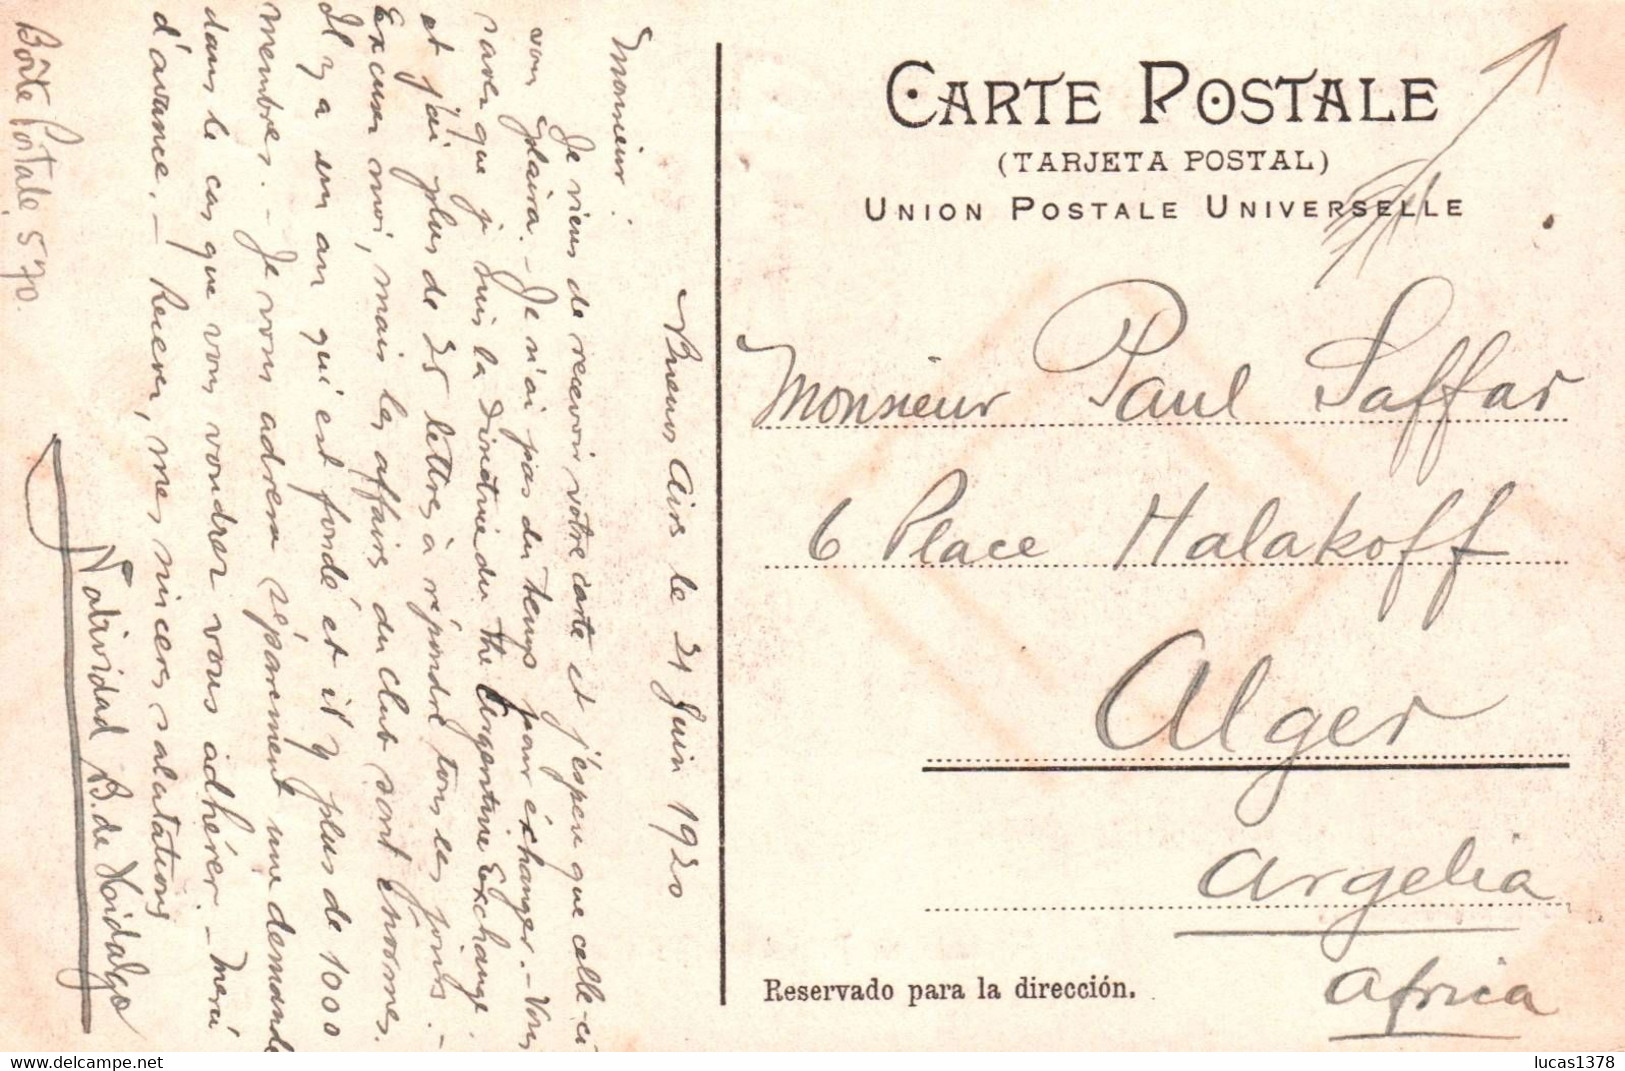 Buenos Aires le 21 Juin 1920
Monsieur :
Je viens de recevoir votre carte et j'espère que celle-ci
vous plaira. - Je n'ai pas du temps pour échanger. - Vous
savez que je suis la Directrice du The Argentine Exchange
et j'ai plus de 25 lettres à répondre tous les jours. -
Excusez moi, mais les affairs du Club sont énormes.
Il y a un an qui est fondé et il y plus de 1000
membres. - Je vous adresse séparément une demande
dans le cas que vous voudrez vous adhérer. - Merci
d'avance. - Recevez, mes sincères salutations
Natividad B. de Hidalgo
Boîte Postale 570.
CARTE POSTALE
(TARJETA POSTAL)
UNION POSTALE UNIVERSELLE
Monsieur Paul Saffar
6 Place Malakoff
Alger
Argelia
Africa
Reservado para la dirección.
lucas1378